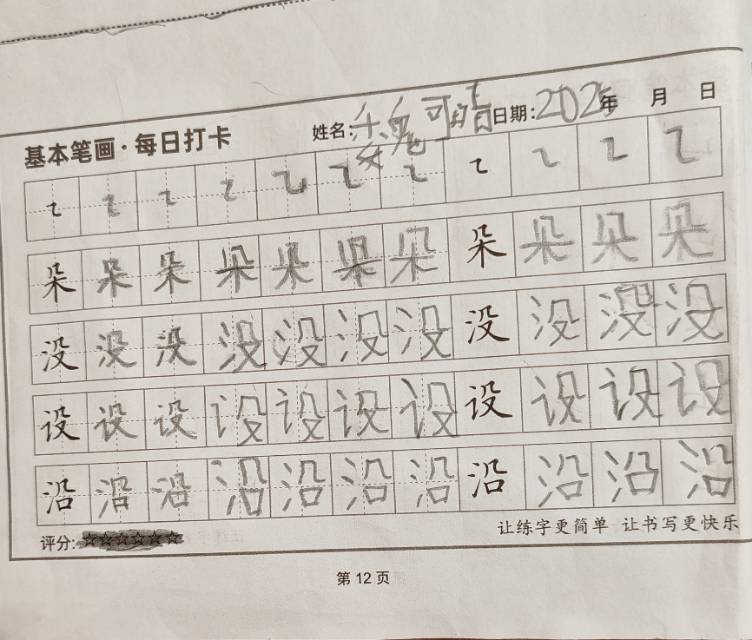 基本笔画·每日打卡 姓名: 日期:2025年 月 日
㇈ ㇈ ㇈ ㇈ ㇈ ㇈ ㇈ ㇈ ㇈ ㇈ ㇈
朵 朵 朵 朵 朵 朵 朵 朵 朵 朵 朵
没 没 没 没 没 没 没 没 没 没 没
设 设 设 设 设 设 设 设 设 设 设
沿 沿 沿 沿 沿 沿 沿 沿 沿 沿 沿
评分:☆☆☆☆☆☆ 让练字更简单 让书写更快乐
第 12 页